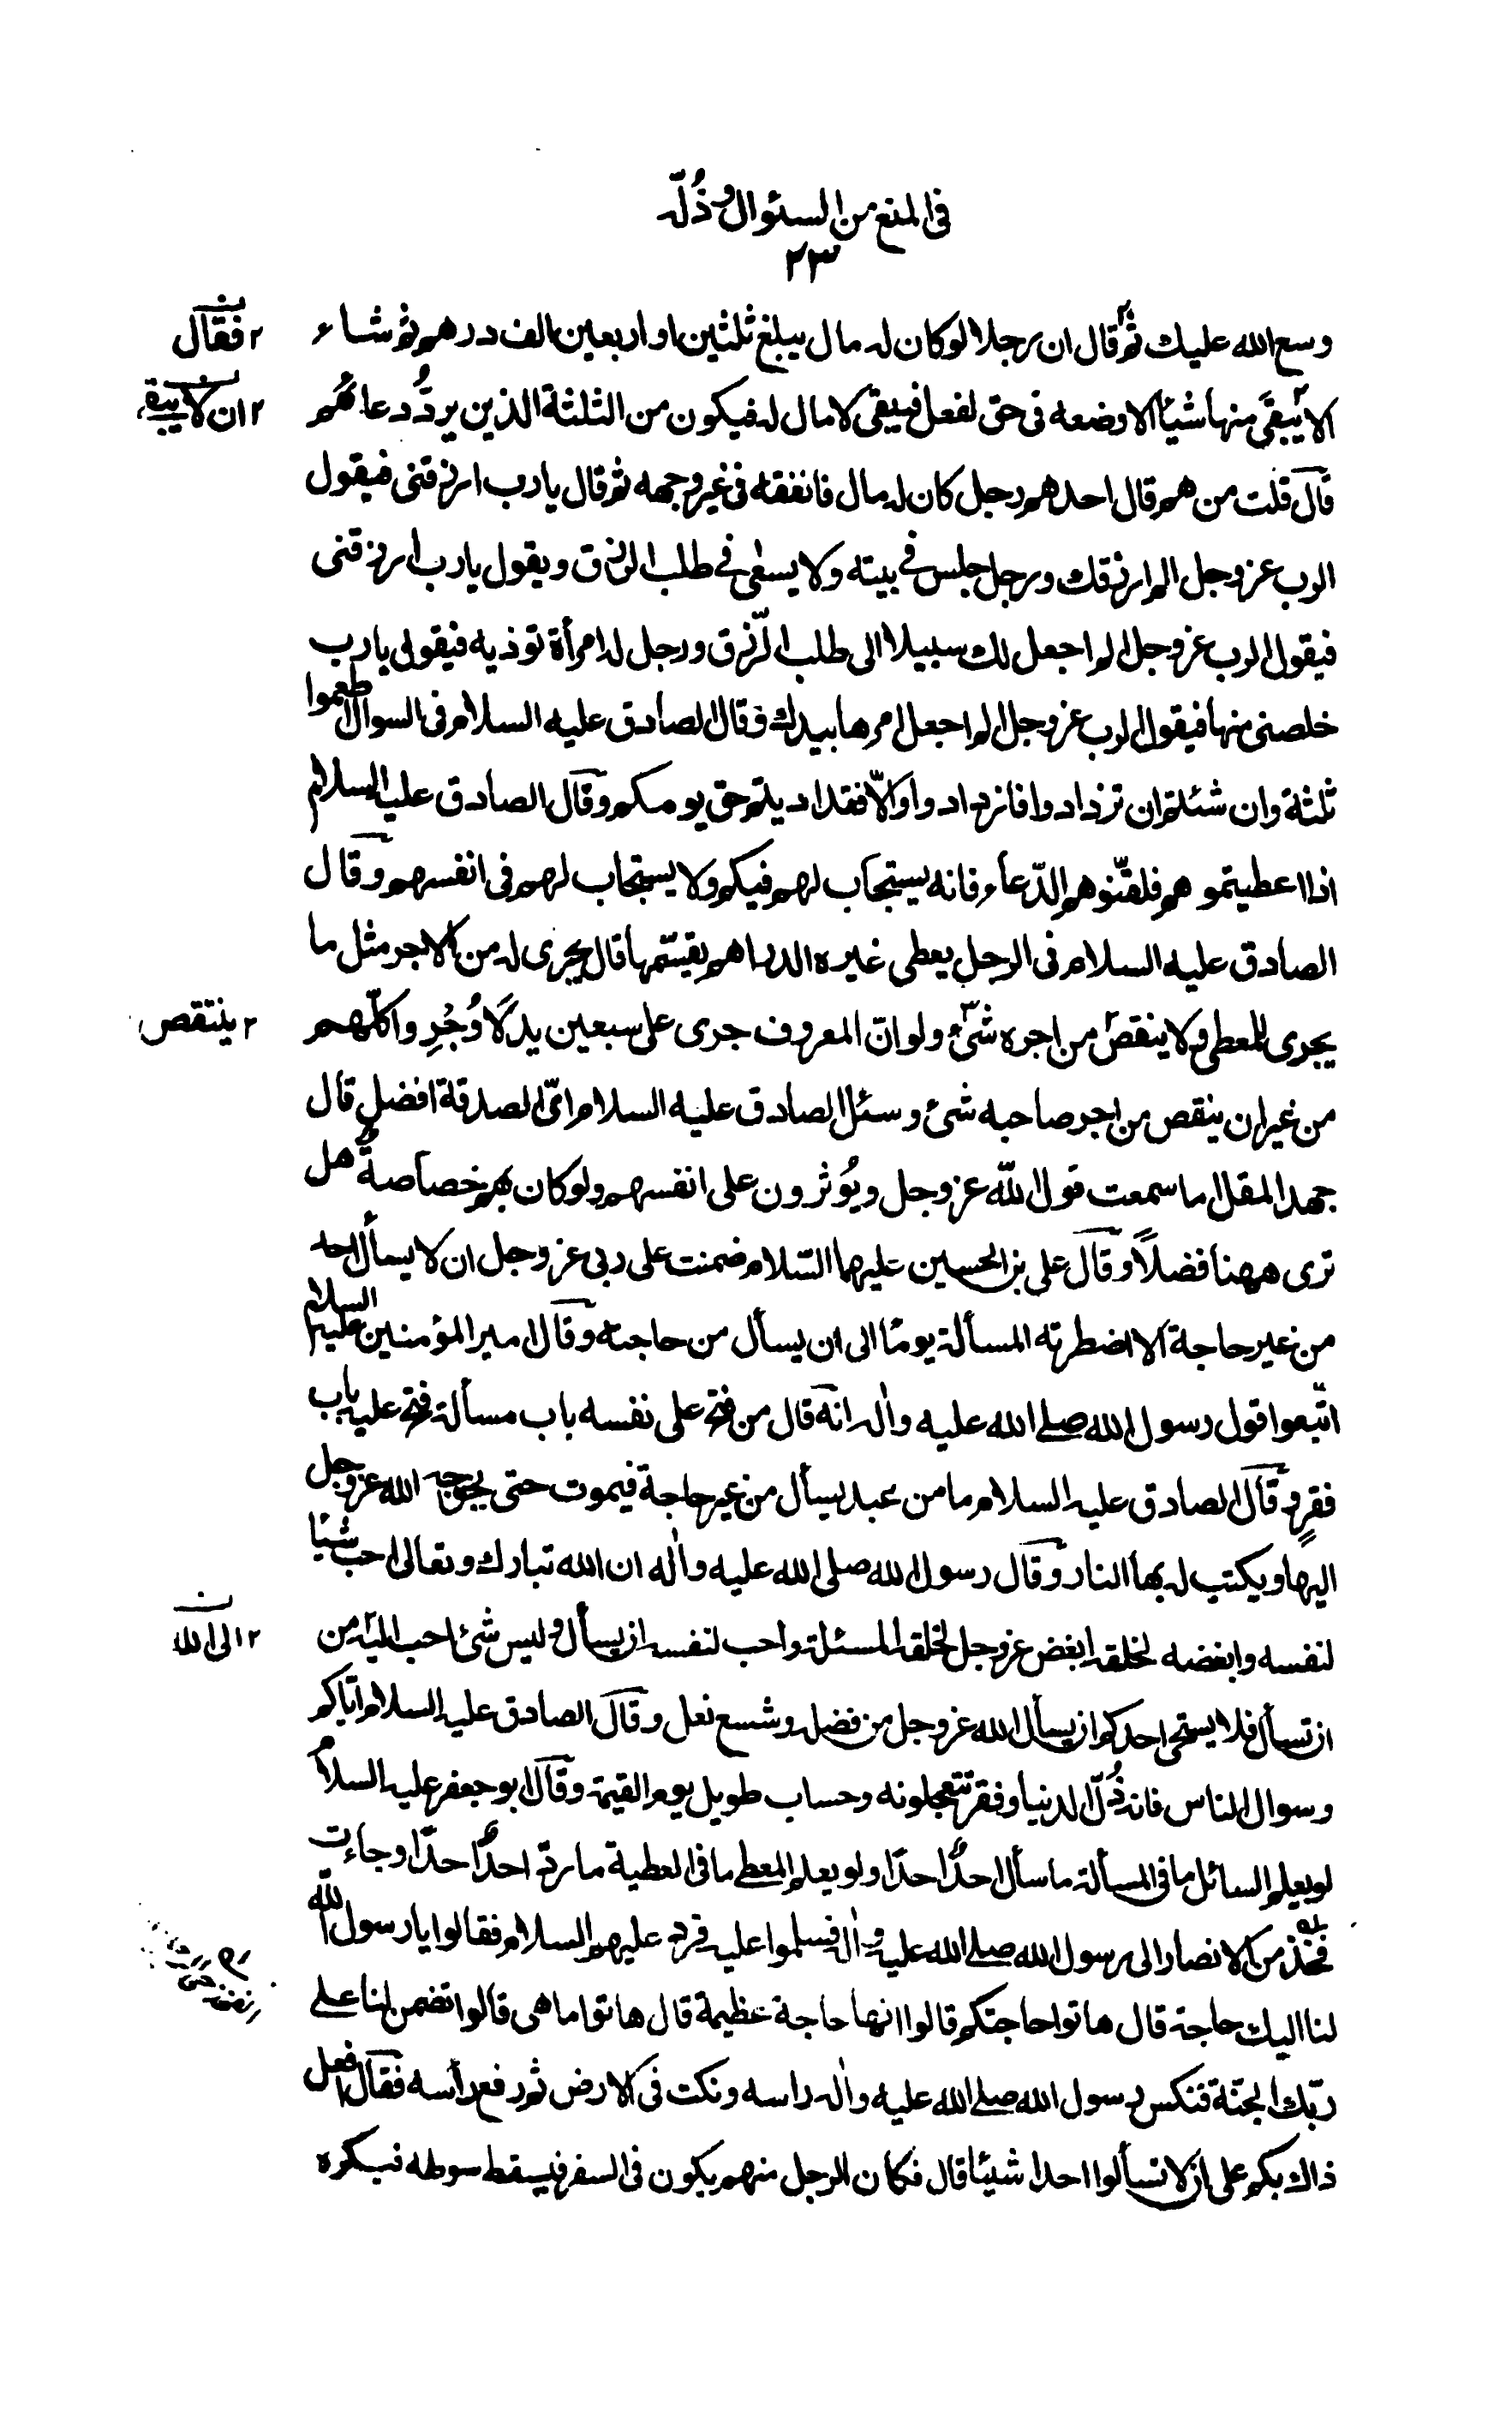 في المنع من السئوال وذُلّه
٢٣
وسع الله عليك ثم٢ قال ان رجلا لو كان له مال يبلغ ثلثين او اربعين الف درهم ثم شاء
٢ فقال
الا٢ يبقى منها شيئا الا وضعه في حق لفعل فيبقى لا مال له فيكون من الثلثة الذين يردّ دعاؤهم
٢ ان لا يبقى
قال قلت من هم قال احدهم رجل كان له مال فانفقه في غير وجهه ثم قال يا رب ارزقني فيقول
الرب عز وجل الم ارزقك ورجل جلس في بيته ولا يسعى في طلب الرزق ويقول يا رب ارزقني
فيقول الرب عز وجل الم اجعل لك سبيلا الى طلب الرّزق ورجل له امرأة توذيه فيقول يا رب
خلصني منها فيقول الرب عز وجل الم اجعل امرها بيدك وقال الصادق عليه السلام في السوال اطعموا
ثلثة وان شئتم ان تزدادوا فازدادوا والّا فقد اديتم حق يومكم وقال الصادق عليه السلام
اذا اعطيتموهم فلقّنوهم الدّعاء فانه يستجاب لهم فيكم ولا يستجاب لهم في انفسهم وقال
الصادق عليه السلام في الرجل يعطي غيره الدراهم يقسّمها قال يجري له من الاجر مثل ما
يجري للمعطي ولا ينقص٢ من اجره شئ ولو انّ المعروف جرى على سبعين يدًا لاوُجُرِوا كلّهم
٢ ينتقص
من غير ان ينقص من اجر صاحبه شئ وسئل الصادق عليه السلام ايّ الصدقة افضل قال
جهد المقل اما سمعت قول اللّه عز وجل ويُوثرون على انفسهم ولو كان بهم خصاصةٌ هل
ترى ههنا فضلاً وقال علي بن الحسين عليهما السّلام ضمنت على ربي عز وجل ان لا يسأل احد
من غير حاجة الا اضطرته المسألة يومًا الى ان يسأل من حاجته وقال امير المؤمنين عليه السلام
اتّبعوا قول رسول الله صلى الله عليه واله انه قال من فتح على نفسه باب مسألة فتح عليه باب
فقرٍ وقال الصادق عليه السلام ما من عبد يسأل من غير حاجة فيموت حتى يحوجه الله عز وجل
اليها ويكتب له بها النار وقال رسول الله صلى الله عليه واله ان الله تبارك وتعالى احب شيئا
لنفسه وابغضه لخلقه ابغض عز وجل لخلقه المسئلة واحب لنفسه ان يسأل وليس شئ احب اليه٢ من
٢ الى الله
ان تسأل فلا يستحي احدكم ان يسأل الله عز وجل من فضله ولو شسع نعل وقال الصادق عليه السلام اياكم
وسوال الناس فانه ذُلّ الدنيا وفقر تتعجلونه وحساب طويل يوم القيمة وقال ابو جعفر عليه السلام
لو يعلم السائل ما في المسألة ما سأل احدٌ احدًا ولو يعلم المعطي ما في العطية ما ردّ احدٌ احدًا وجاءت
فخذ من الانصار الى رسول الله صلى الله عليه واله فسلموا عليه فرد عليهم السلام فقالوا يا رسول اللّه
لنا اليك حاجة قال هاتوا حاجتكم قالوا انها حاجة عظيمة قال هاتوا ما هي قالوا تضمن لنا على
ربّك الجنّة فنكس رسول الله صلى الله عليه واله راسه ونكت في الارض ثم رفع رأسه فقال افعل
ذاك بكم على ان لا تسألوا احدا شيئا قال فكان الرجل منهم يكون في السفر فيسقط سوطه فيكره